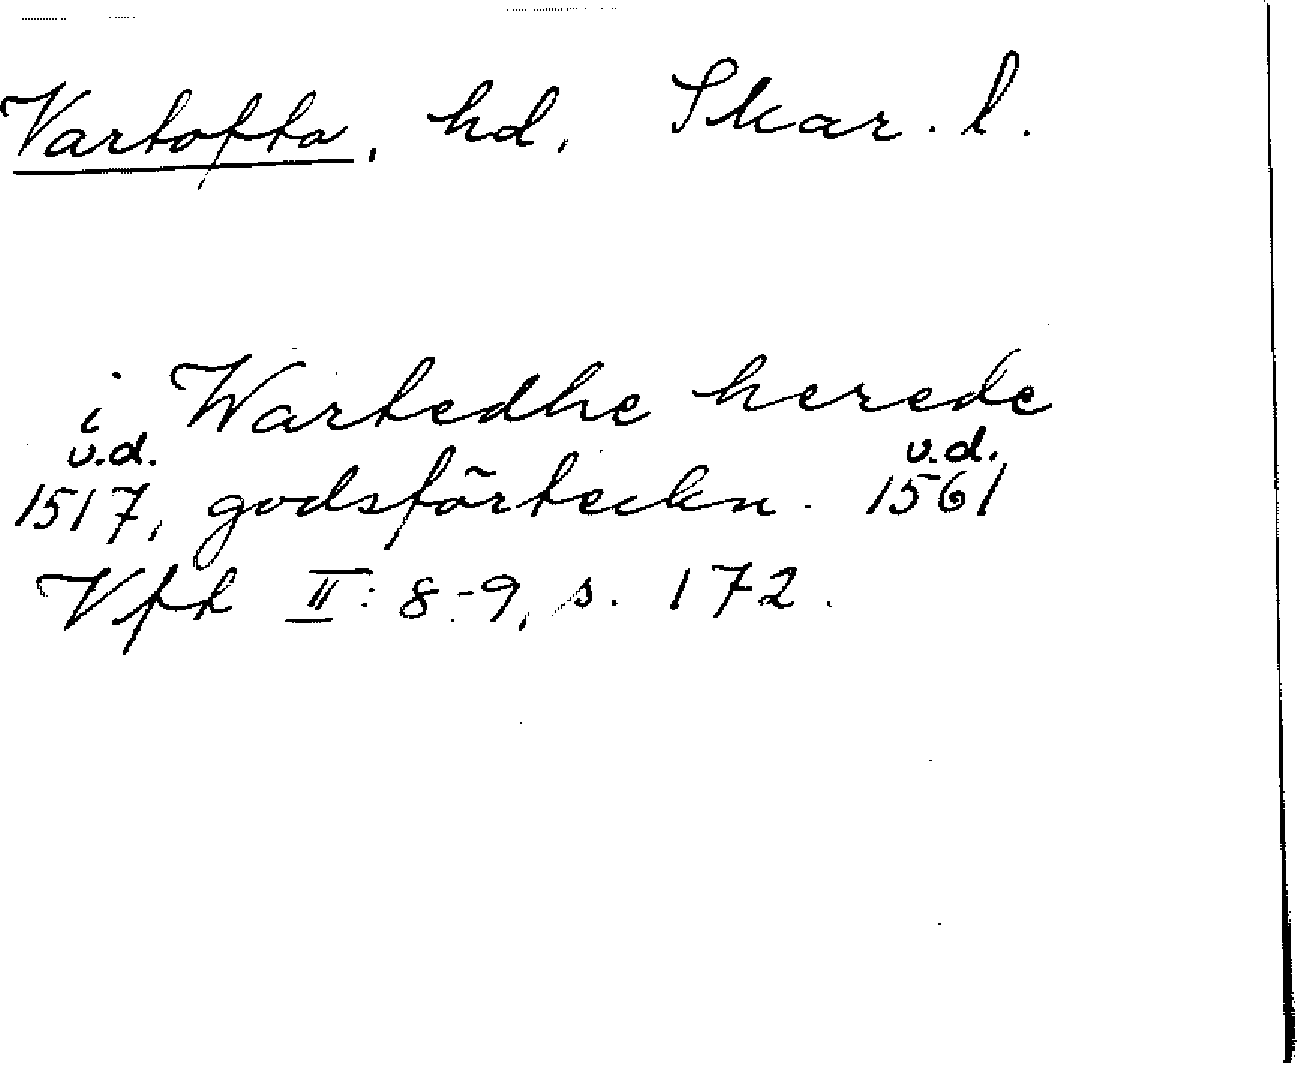 Vartofta, hd, Skar. l.
i Wartedhe herede
v.d. v.d.
1517, godsförteckn. 1561
Vft II: 8-9, s. 172.